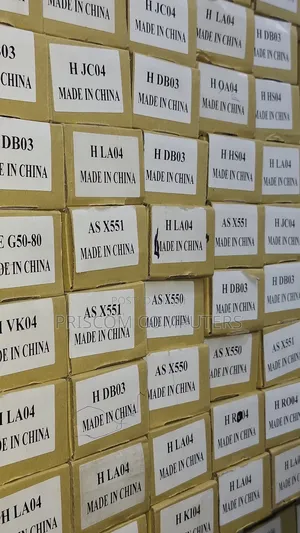 H JC04
MADE IN CHINA
H LA04
MADE IN CHINA
DB03
IN CHINA
H JC04
MADE IN CHINA
H DB03
MADE IN CHINA
H OA04
MADE IN CHINA
H DB03
MADE IN CHINA
H HS04
MADE IN CHINA
DB03
IN CHINA
H LA04
MADE IN CHINA
H DB03
MADE IN CHINA
H HS04
MADE IN CHINA
H LA04
MADE IN CHINA
E G50-80
IN CHINA
AS X551
MADE IN CHINA
H LA04
MADE IN CHINA
AS X551
MADE IN CHINA
H JC04
MADE IN CHINA
H VK04
IN CHINA
AS X551
MADE IN CHINA
AS X550
MADE IN CHINA
H DB03
MADE IN CHINA
H DB03
MADE IN CHINA
POSTED BY
PRISCOM COMPUTERS
LA04
IN CHINA
H DB03
MADE IN CHINA
AS X550
MADE IN CHINA
AS X550
MADE IN CHINA
AS X551
MADE IN CHINA
H LA04
IN CHINA
H LA04
MADE IN CHINA
H LA04
MADE IN CHINA
MADE IN CHINA
H RO04
MADE IN CHINA
H KI04
MADE IN CHINA
H LA04
MADE IN CHINA
H LA04